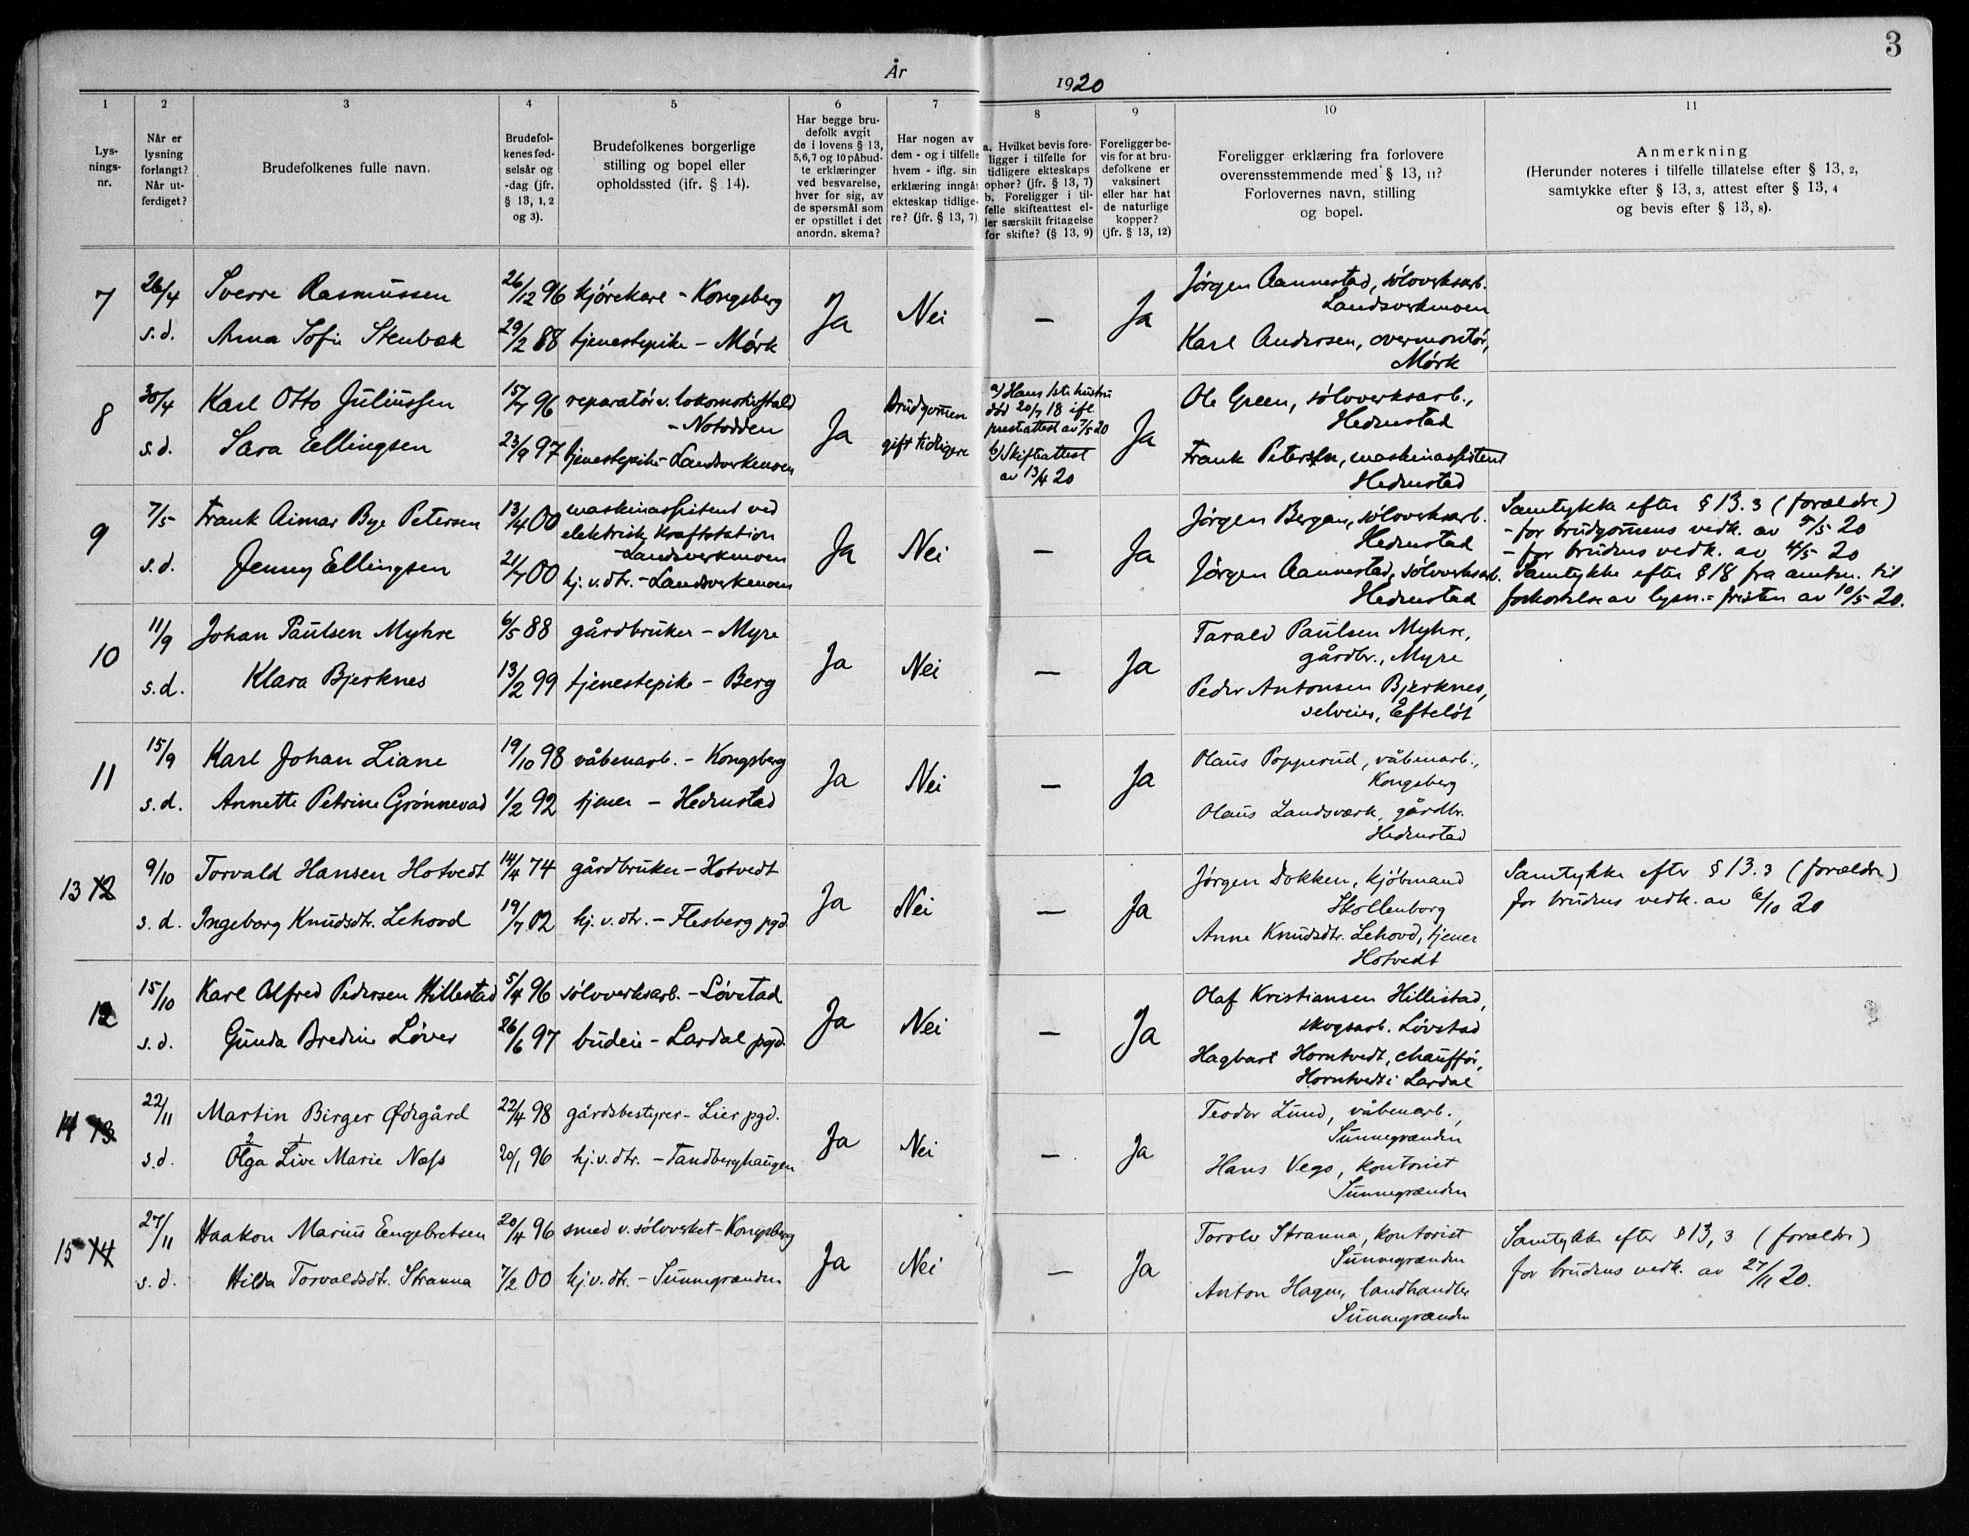 3
År 1920
1 2 3 4 5 6 7 8 9 10 11
Lys-
nings-
nr.
Når er
lysning
forlangt?
Når ut-
ferdiget?
Brudefolkenes fulle navn.
Brudefol-
kenes fød-
selsår og
-dag (jfr.
§ 13, 1, 2
og 3).
Brudefolkenes borgerlige
stilling og bopel eller
opholdssted (jfr. § 14).
Har begge bru-
defolk avgit
de i lovens § 13,
5, 6, 7 og 10 påbud-
te erklæringer
ved besvarelse,
hver for sig, av
de spørsmål som
er opstillet i det
anordn. skema?
Har nogen av
dem - og i tilfelle
hvem - iflg. sin
erklæring inngåt
ekteskap tidlige-
re? (jfr. § 13, 7)
a. Hvilket bevis fore-
ligger i tilfelle for
tidligere ekteskaps
ophør? (jfr. § 13, 7)
b. Foreligger i til-
felle skifteattest el-
ler særskilt fritagelse
for skifte? (§ 13, 9)
Foreligger be-
vis for at bru-
defolkene er
vaksinert
eller har hat
de naturlige
kopper?
(jfr. § 13, 12)
Foreligger erklæring fra forlovere
overensstemmende med § 13, 11?
Forlovernes navn, stilling
og bopel.
Anmerkning
(Herunder noteres i tilfelle tillatelse efter § 13, 2,
samtykke efter § 13, 3, attest efter § 13, 4
og bevis efter § 13, 8).
7
26/4
s.d.
Sverre Rasmussen
Anna Sofie Stenbæk
26/12 96
29/2 88
kjørekarl - Kongsberg
tjenestepike - Mørk
Ja
Nei
—
Ja
Jørgen Aannestad, sølvverksarb.
Landsverkmoen
Karl Andersen, overmontør,
Mørk
8
30/4
s.d.
Karl Otto Juliussen
Sara Ellingsen
15/7 96
23/9 97
reparatør v. lokomotivstald
- Notodden
tjenestepike - Landsverkmoen
Ja
Brudgommen
gift tidligere
a) Hans 1ste hustru
død 20/7 18 ifl.
prestattest av 7/5 20
b) Skifteattest
av 13/4 20
Ja
Ole Green, sølvverksarb.,
Hedenstad
Frank Petersen, maskinassistent
Hedenstad
9
7/5
s.d.
Frank Aimar Bye Petersen
Jenny Ellingsen
13/4 00
21/7 00
maskinassistent ved
elektrisk Kraftstation
- Landsverkmoen
hj. v. dtr. - Landsverkmoen
Ja
Nei
—
Ja
Jørgen Bergan, sølvverksarb.
Hedenstad
Jørgen Aannestad, sølvverksarb.
Hedenstad
Samtykke efter § 13.3 (forældre)
- for brudgommens vedk. av 5/5 20
- for brudens vedk. av 4/5 20
Samtykke efter § 18 fra amtm. til
forkortelse av lysn.- fristen av 10/5 20.
10
11/9
s.d.
Johan Paulsen Myhre
Klara Bjerknes
6/5 88
13/2 99
gårdbruker - Myre
tjenestepike - Berg
Ja
Nei
—
Ja
Tarald Paulsen Myhre,
gårdbr., Myre
Peder Antonsen Bjerknes,
selveier, Efteløt
11
15/9
s.d.
Karl Johan Liane
Annette Petrine Grønnevad
19/10 98
1/2 92
våbenarb. - Kongsberg
tjener - Hedenstad
Ja
Nei
—
Ja
Olaus Popperud, våbenarb.,
Kongsberg
Olaus Landsværk, gårdbr.
Hedenstad
13 12
9/10
s.d.
Torvald Hansen Hotvedt
Ingeborg Knudsdtr. Lehovd
14/4 74
19/7 02
gårdbruker - Hotvedt
hj. v. dtr. - Flesberg pgd.
Ja
Nei
—
Ja
Jørgen Dokken, kjøbmand
Skollenborg
Anne Knudsdtr. Lehovd, tjener
Hotvedt
Samtykke efter § 13.3 (forældre)
for brudens vedk. av 6/10 20
12
15/10
s.d.
Karl Alfred Pedersen Hillestad
Gunda Bredine Løver
5/4 96
26/6 97
sølvverksarb. - Løvstad
budeie - Lardal pgd.
Ja
Nei
—
Ja
Olaf Kristiansen Hillestad,
skogsarb. Løvstad
Hagbart Horntvedt, chauffør,
Horntvedt i Lardal
14 13
22/11
s.d.
Martin Birger Ødegård
2 1
Olga Live Marie Næss
22/4 98
20/1 96
gårdsbestyrer - Lier pgd.
hj. v. dtr. - Tandberghaugen
Ja
Nei
—
Ja
Teodor Lund, våbenarb.,
Sunnegrænden
Hans Vego, kontorist
Sunnegrænden
15 14
27/11
s.d.
Haakon Marius Engebretsen
Hilda Torvaldsdt. Stranna
20/4 96
7/2 00
smed v. sølvverket - Kongsberg
hj. v. dtr. - Sunnegrænden
Ja
Nei
—
Ja
Torolv Stranna, kontorist
Sunnegrænden
Anton Hagen, landhandler
Sunnegrænden
Samtykke efter § 13, 3 (forældre)
for brudens vedk. av 27/11 20.